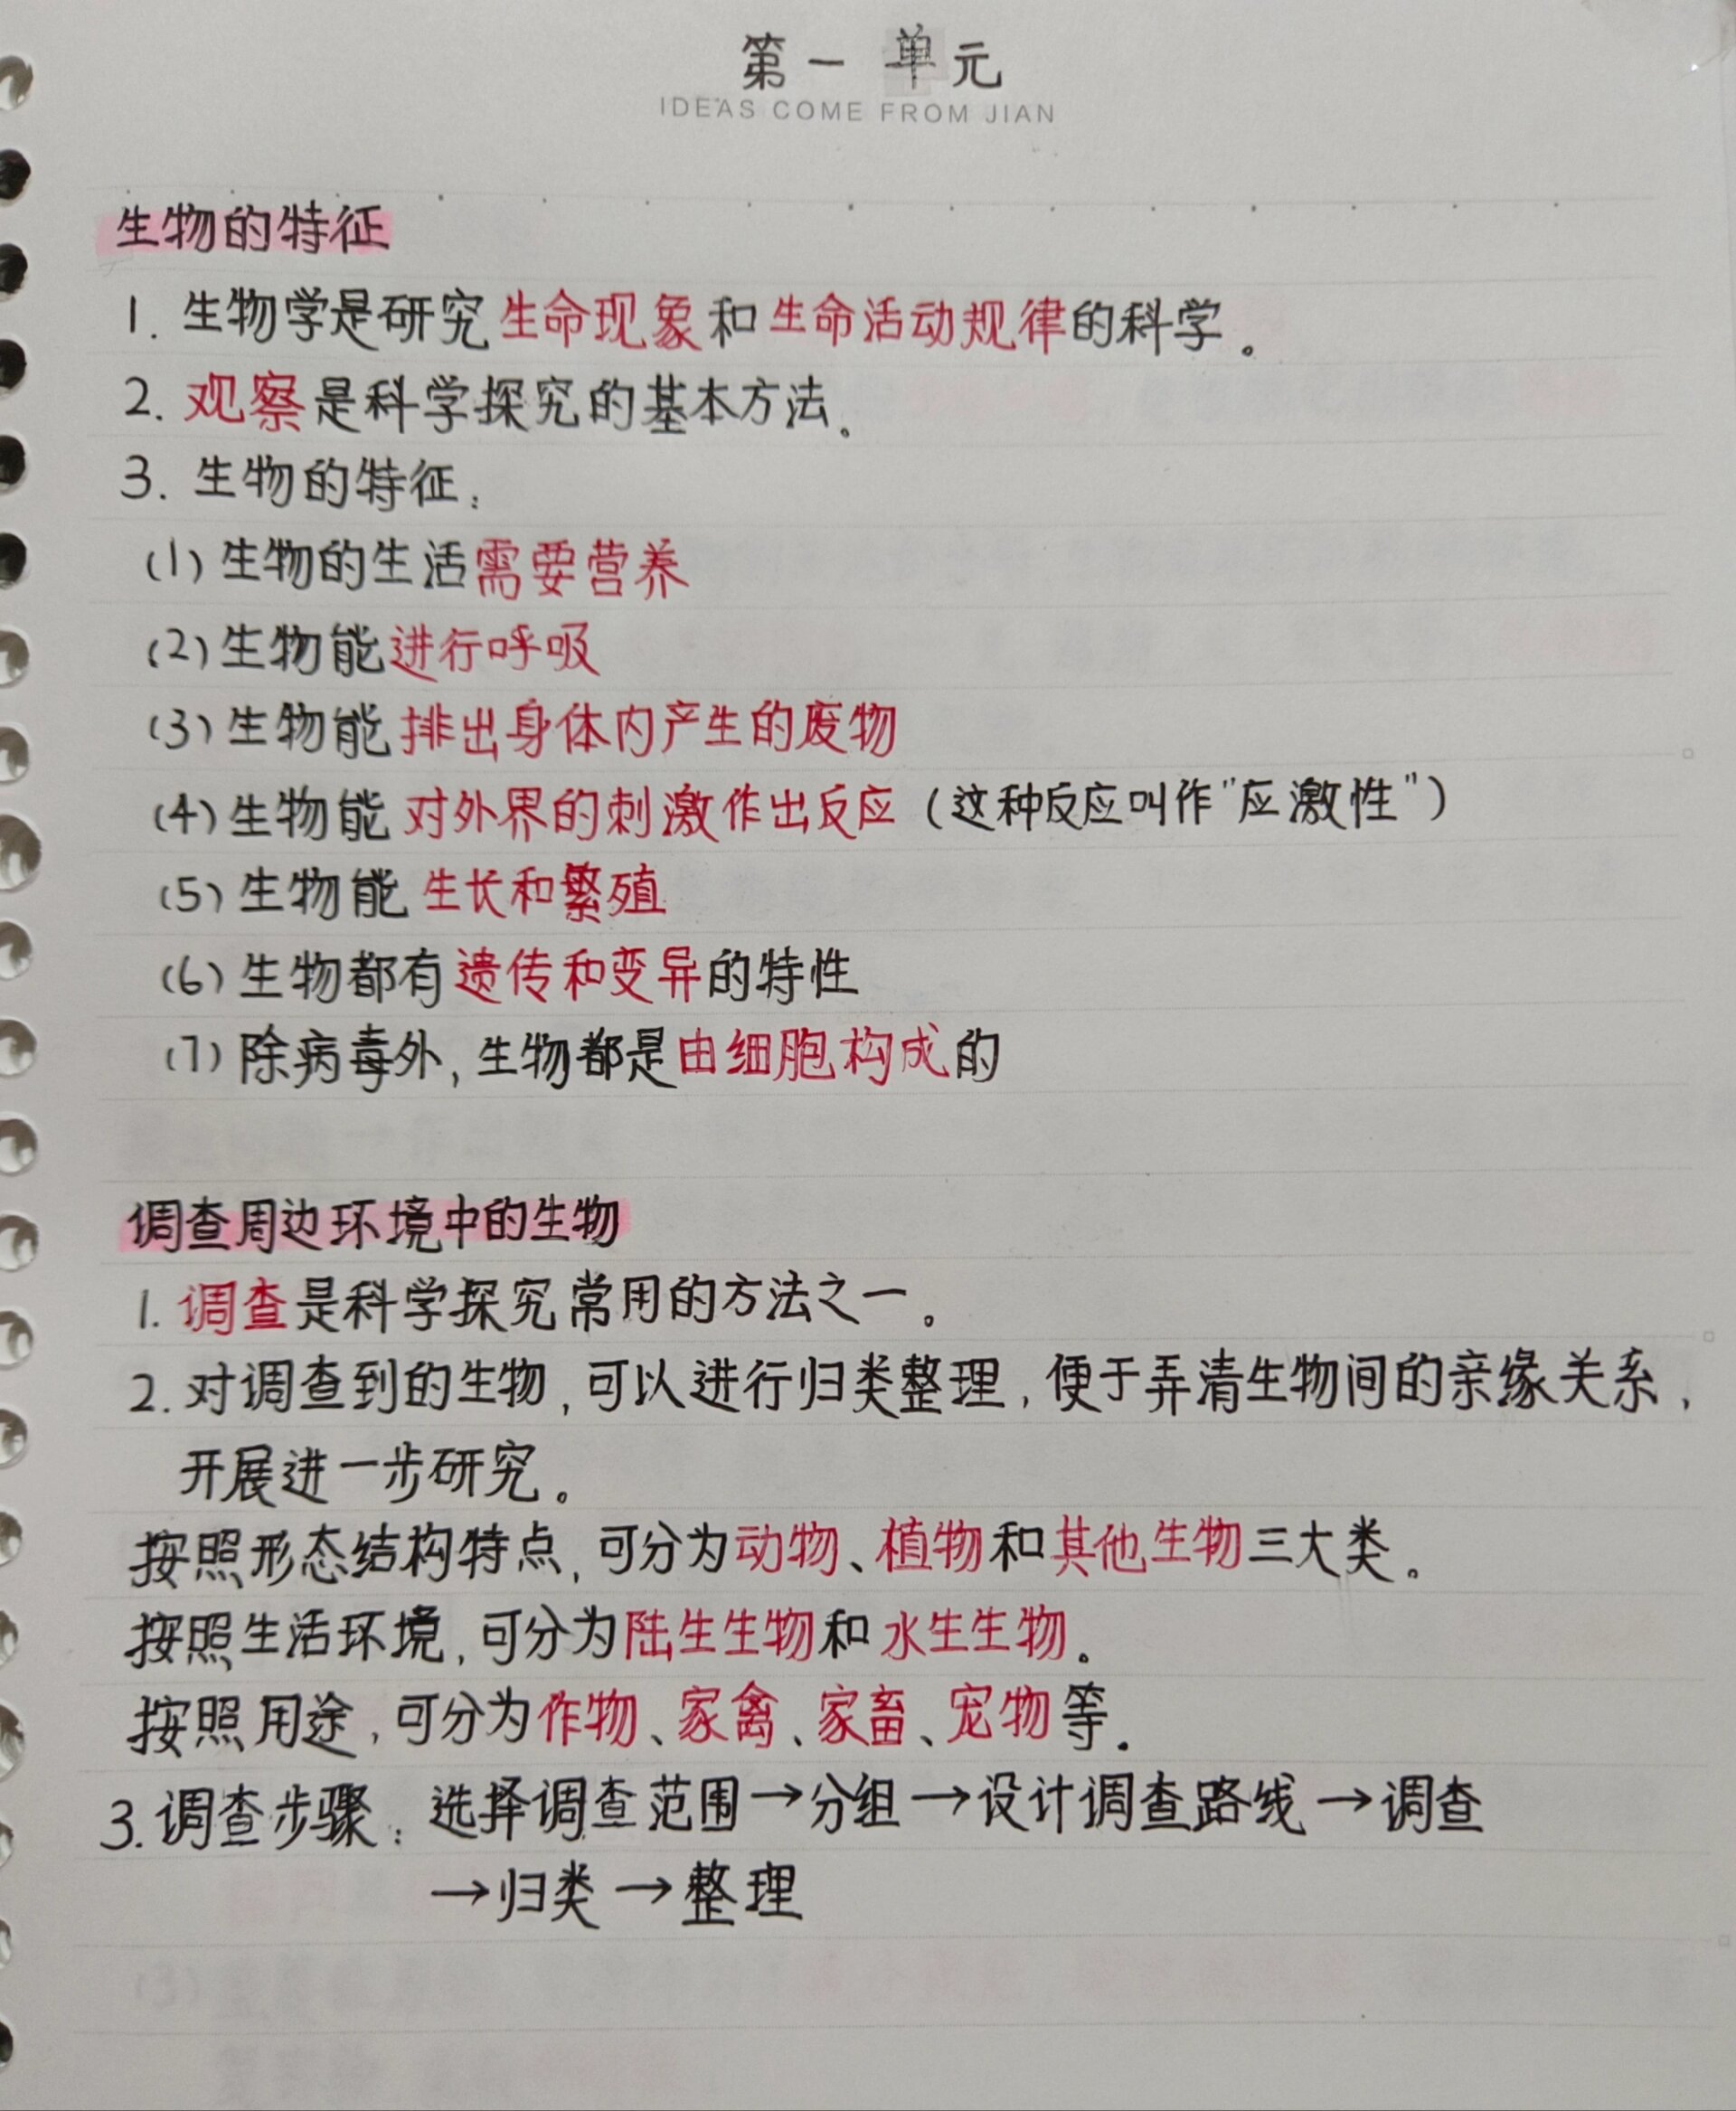 第一单元
IDEAS COME FROM JIAN
生物的特征
1. 生物学是研究生命现象和生命活动规律的科学。
2. 观察是科学探究的基本方法。
3. 生物的特征:
(1) 生物的生活需要营养
(2) 生物能进行呼吸
(3) 生物能排出身体内产生的废物
(4) 生物能对外界的刺激作出反应（这种反应叫作"应激性"）
(5) 生物能生长和繁殖
(6) 生物都有遗传和变异的特性
(7) 除病毒外,生物都是由细胞构成的
调查周边环境中的生物
1. 调查是科学探究常用的方法之一。
2. 对调查到的生物,可以进行归类整理,便于弄清生物间的亲缘关系,
开展进一步研究。
按照形态结构特点,可分为动物、植物和其他生物三大类。
按照生活环境,可分为陆生生物和水生生物。
按照用途,可分为作物、家禽、家畜、宠物等。
3. 调查步骤: 选择调查范围→分组→设计调查路线→调查
→归类→整理